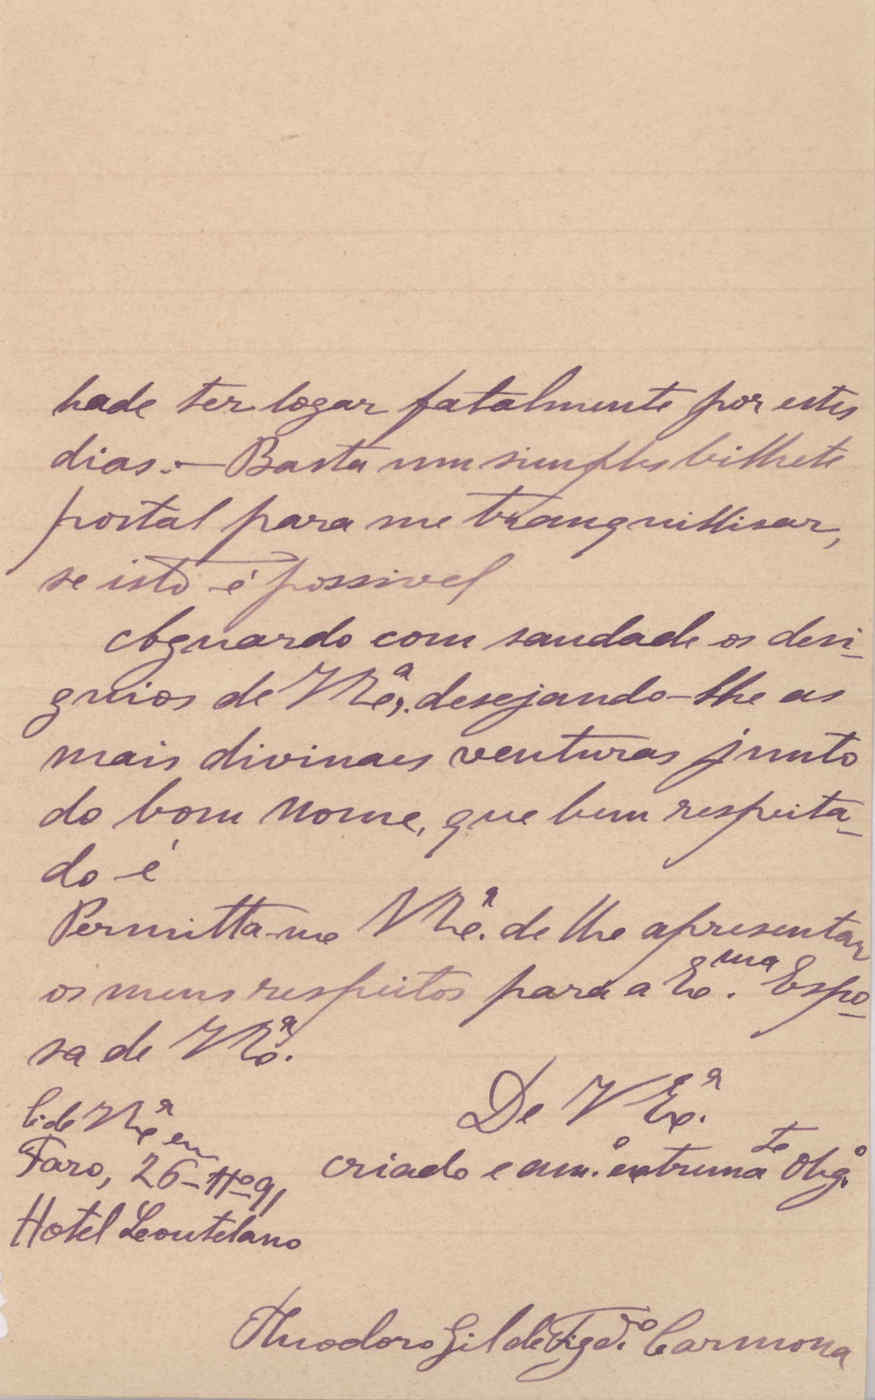 hade ter logar fatalmente por estes
dias. — Basta um simples bilhete
postal para me tranquillisar,
se isto é possivel
Aguardo com saudade os desi-
gnios de V Exª, desejando-lhe as
mais divinaes venturas junto
do bom nome, que bem respeita-
do é
Permitta-me V Exª. de lhe apresentar
os meus respeitos para a Exma. Espo-
sa de V Exª.
De V Exª.
C. de V Exª em
Faro, 26-11º 91
criado e amº. extremate Obgº.
Hotel Leoutelano
Theodoro Gil de Figdº. Carmona